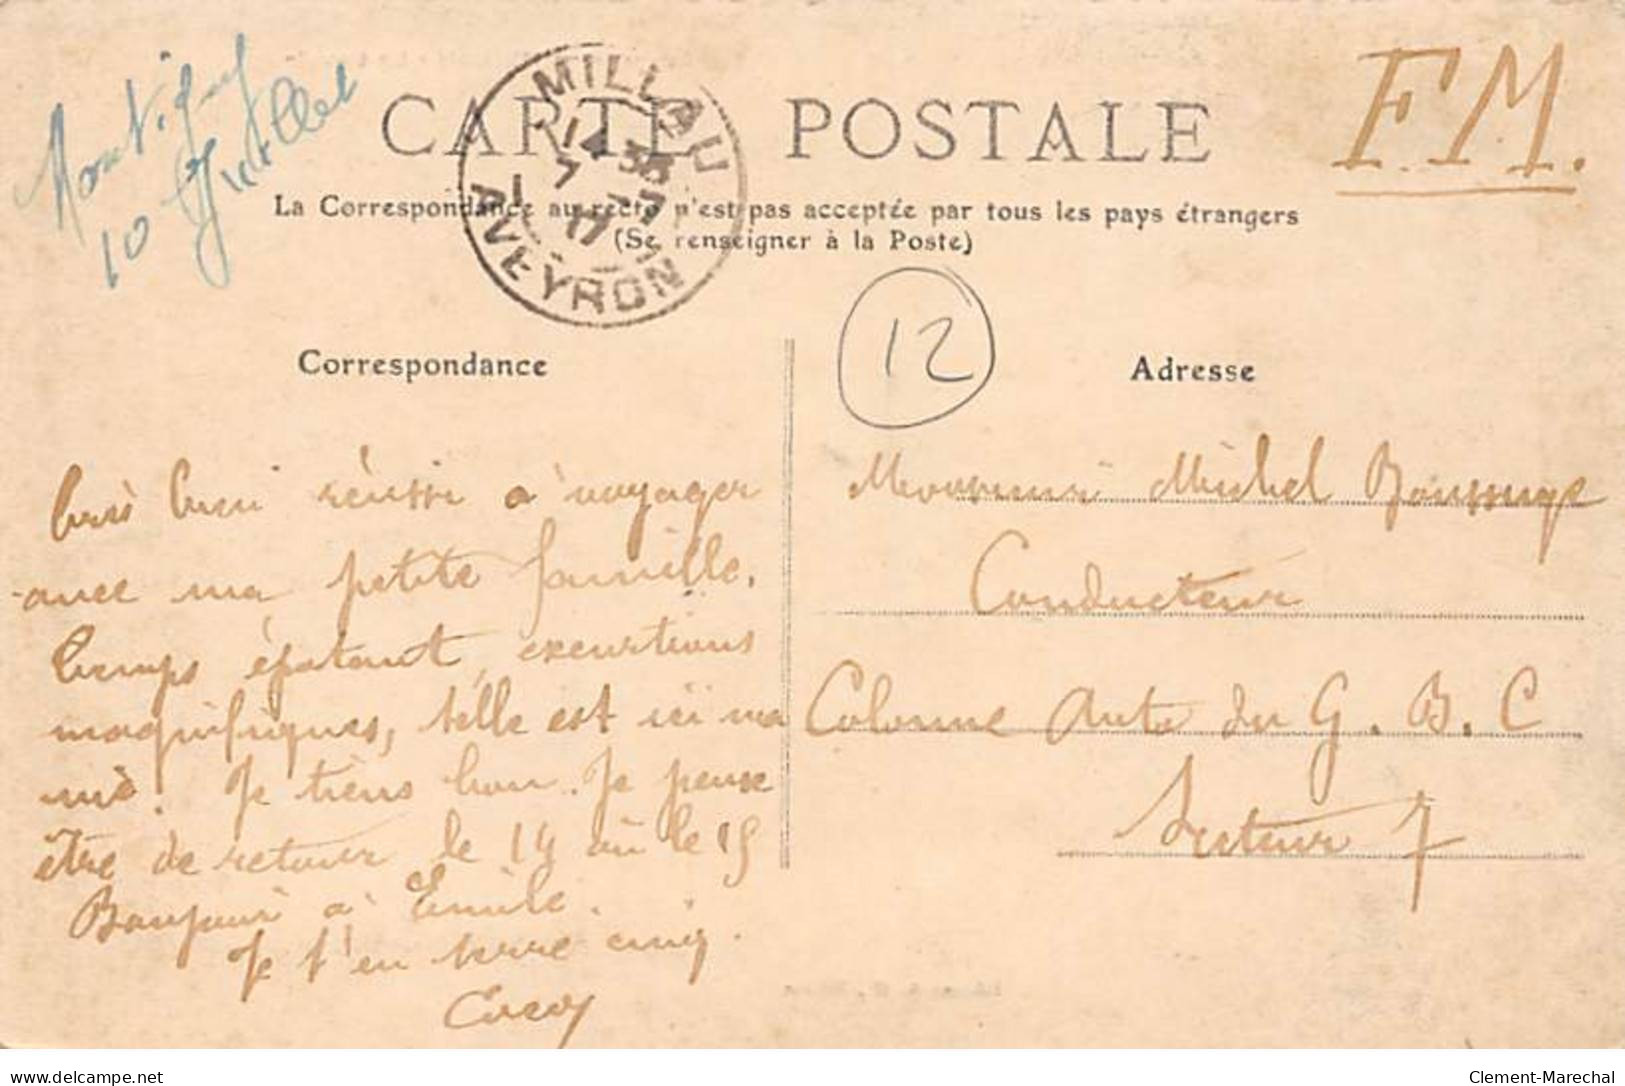 Montigny
10 Juillet
F.M.
CARTE POSTALE
MILLAU
14 35
7 -7
17
AVEYRON
La Correspondance au recto n'est pas acceptée par tous les pays étrangers
(Se renseigner à la Poste)
12
Correspondance
Adresse
très bien réussi à voyager
avec ma petite famille.
temps épatant, excurtions
magnifiques, telle est ici ma
vie. Je tiens bon. Je pense
être de retour le 14 ou le 15
Bonjour à Emile.
Je t'en serre cinq.
Monsieur Michel
Conducteur
Colonne Auto du G. B. C
Secteur 7
Clement-Marechal
delcampe.net